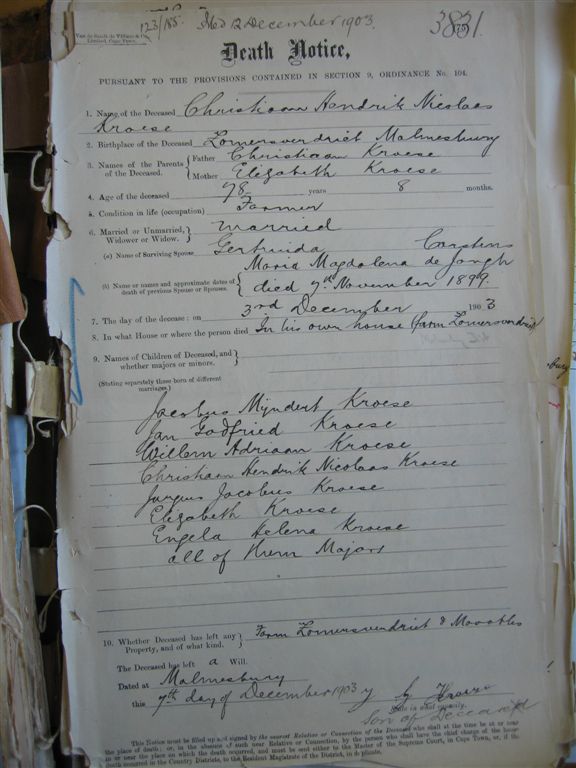 123/185. Filed 12 December 1903. 3831.
Van de Sandt de Villiers & Co.
Limited, Cape Town.
Death Notice,
PURSUANT TO THE PROVISIONS CONTAINED IN SECTION 9, ORDINANCE No. 104.
1. Name of the Deceased Christiaan Hendrik Nicolaas
Kroese
2. Birthplace of the Deceased Zomersverdriet Malmesbury
3. Names of the Parents of the Deceased. Father Christiaan Kroese
Mother Elizabeth Kroese
4. Age of the deceased 78 years 8 months.
5. Condition in life (occupation) Farmer
6. Married or Unmarried, Widower or Widow. married
(a) Name of Surviving Spouse Gertruida Carstens
(b) Name or names and approximate dates of death of previous Spouse or Spouses. Maria Magdalena de Jongh
died 7th November 1899.
7. The day of the decease: on 3rd December 1903
8. In what House or where the person died In his own house (farm Zomersverdriet)
9. Names of Children of Deceased, and
whether majors or minors.
(Stating separately those born of different
marriages.)
Jacobus Myndert Kroese
Jan Godfried Kroese
Willem Adriaan Kroese
Christiaan Hendrik Nicolaas Kroese
Jurgus Jacobus Kroese
Elizabeth Kroese
Engela Helena Kroese
all of them Majors
10. Whether Deceased has left any
Property, and of what kind. Farm Zomersverdriet & Movables
The Deceased has left a Will.
Dated at Malmesbury
this 7th day of December 1903
State in what capacity.
Son of Deceased
This Notice must be filled up and signed by the nearest Relation or Connection of the Deceased who shall at the time be at or near
the place of death; or, in the absence of such near Relation or Connection, by the person who shall have the chief charge of the house
in or near the place on which the death occurred, and must be sent either to the Master of the Supreme Court, in Cape Town, or, if the
death occurred in the Country Districts, to the Resident Magistrate of the District, in duplicate.